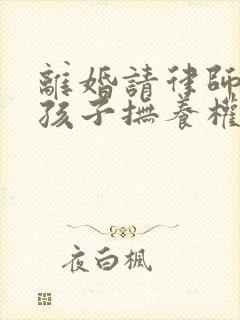 離婚請律師
孩子撫養權
夜白楓